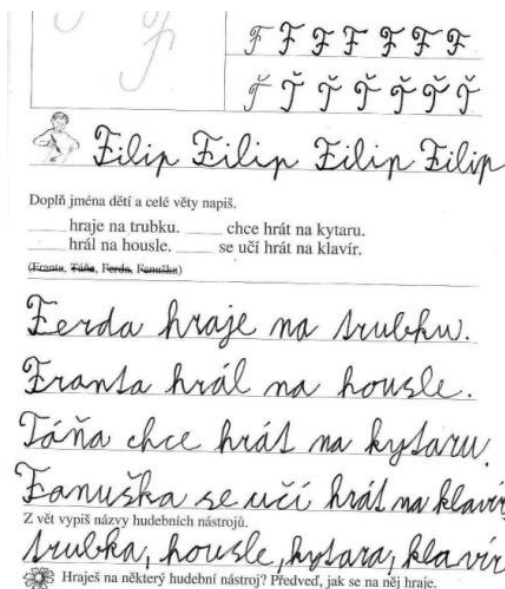 F
F F F F F F F
Ť Ť Ť Ť Ť Ť Ť
Filip Filip Filip Filip
Doplň jména dětí a celé věty napiš.
____ hraje na trubku. ____ chce hrát na kytaru.
____ hrál na housle. ____ se učí hrát na klavír.
(Franta, Táňa, Ferda, Fanuška)
Ferda hraje na trubku.
Franta hrál na housle.
Táňa chce hrát na kytaru.
Fanuška se učí hrát na klavír
Z vět vypiš názvy hudebních nástrojů.
trubka, housle, kytara, klavír
Hraješ na některý hudební nástroj? Předveď, jak se na něj hraje.